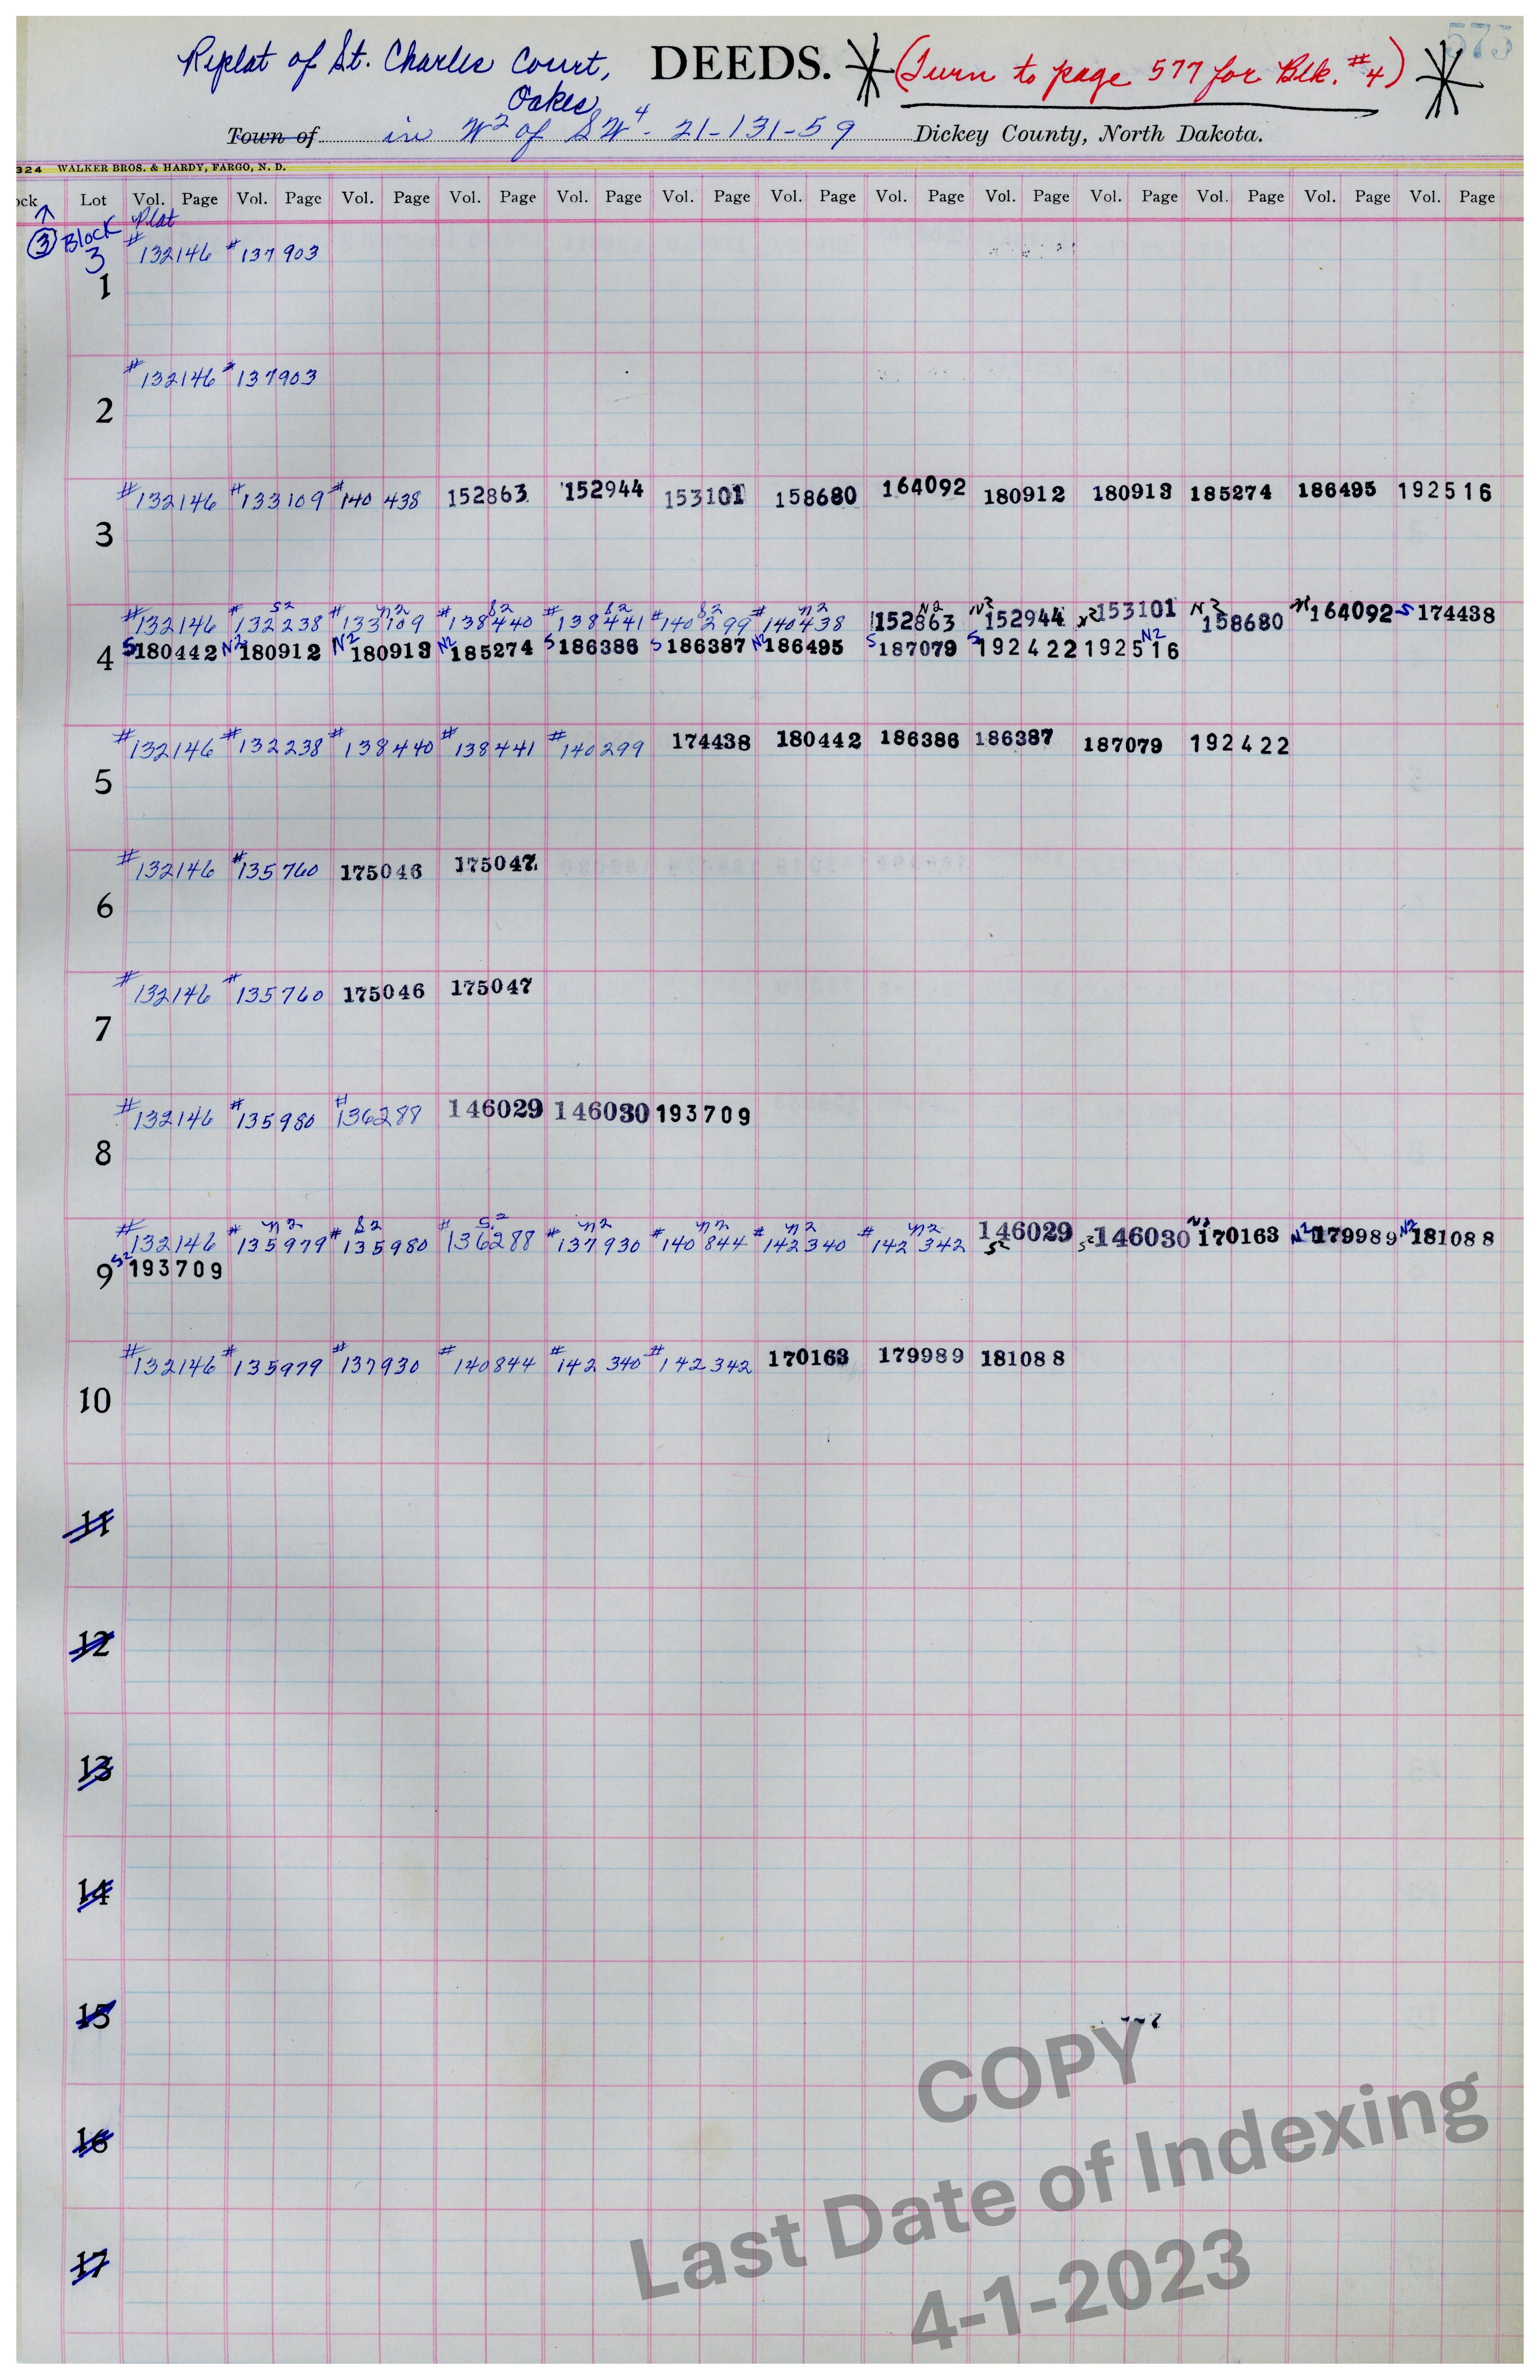 575
Replat of St. Charles Court, DEEDS. (Turn to page 577 for Blk. #4)
Oakes
Town of in W2 of SW4 - 21-131-59 Dickey County, North Dakota.
324 WALKER BROS. & HARDY, FARGO, N. D.
ock Lot Vol. Page Vol. Page Vol. Page Vol. Page Vol. Page Vol. Page Vol. Page Vol. Page Vol. Page Vol. Page Vol. Page Vol. Page Vol. Page
↑ Plat
③ Block 3 #132146 #137903
1
#132146 #137903
2
#132146 #133109 #140438 152863 152944 153101 158680 164092 180912 180913 185274 186495 192516
3
S2 N2 S2 S2 S2 N2 N2 N2 N2 N2 N S
#132146 #132238 #133109 #138440 #138441 #140299 #140438 152863 152944 153101 158680 164092 174438
4 S 180442 N2 180912 N2 180913 N2 185274 S 186386 S 186387 N2 186495 S 187079 S 192422 192516 N2
#132146 #132238 #138440 #138441 #140299 174438 180442 186386 186387 187079 192422
5
#132146 #135760 175046 175047
6
#132146 #135760 175046 175047
7
#132146 #135980 #136288 146029 146030 193709
8
N2 S2 S2 N2 N2 N2 N2
#132146 #135979 #135980 #136288 #137930 #140844 #142340 #142342 146029 S2 S2 146030 N2 170163 N2 179989 N2 181088
9 S2 193709
#132146 #135979 #137930 #140844 #142340 #142342 170163 179989 181088
10
11
12
13
14
15
16
17
COPY
Last Date of Indexing
4-1-2023